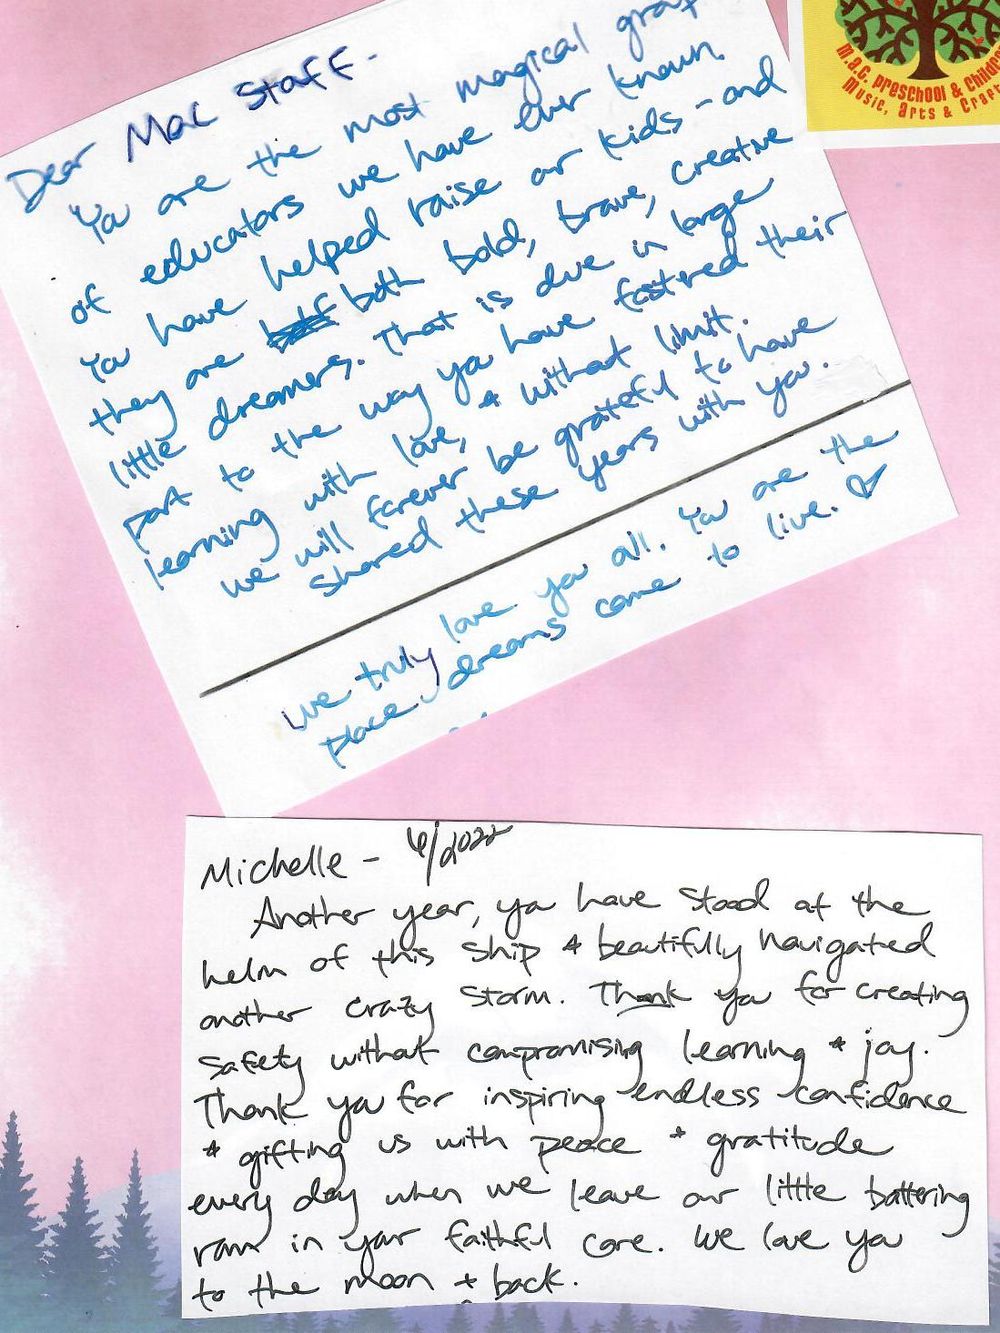 Dear Mac Staff -
You are the most magical group
of educators we have ever known.
You have helped raise our kids - and
they are both bold, brave, creative
little dreamers. That is due in large
part to the way you have fostered their
learning with love, & without limit.
We will forever be grateful to have
shared these years with you.
We truly love you all. You are the
place dreams come to live. ♡
M.A.C. Preschool & Childc
Music, Arts & Craft
Michelle - 6/2022
Another year, you have stood at the
helm of this ship & beautifully navigated
another crazy storm. Thank you for creating
safety without compromising learning & joy.
Thank you for inspiring endless confidence
& gifting us with peace & gratitude
every day when we leave our little battering
ram in your faithful care. We love you
to the moon & back.